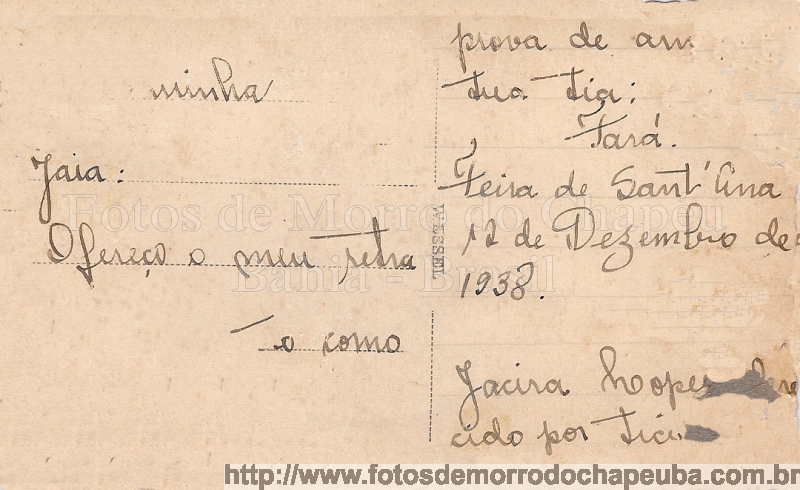 minha
Jaia:
Ofereço o meu retra
to como
prova de am
tua tia:
Fará.
Feira de Sant'Ana
12 de Dezembro de
1938.
Jacira Lopes
cido por
WESSEL
Fotos de Morro do Chapéu
Bahia - Brasil
http://www.fotosdemorrodochapeuba.com.br